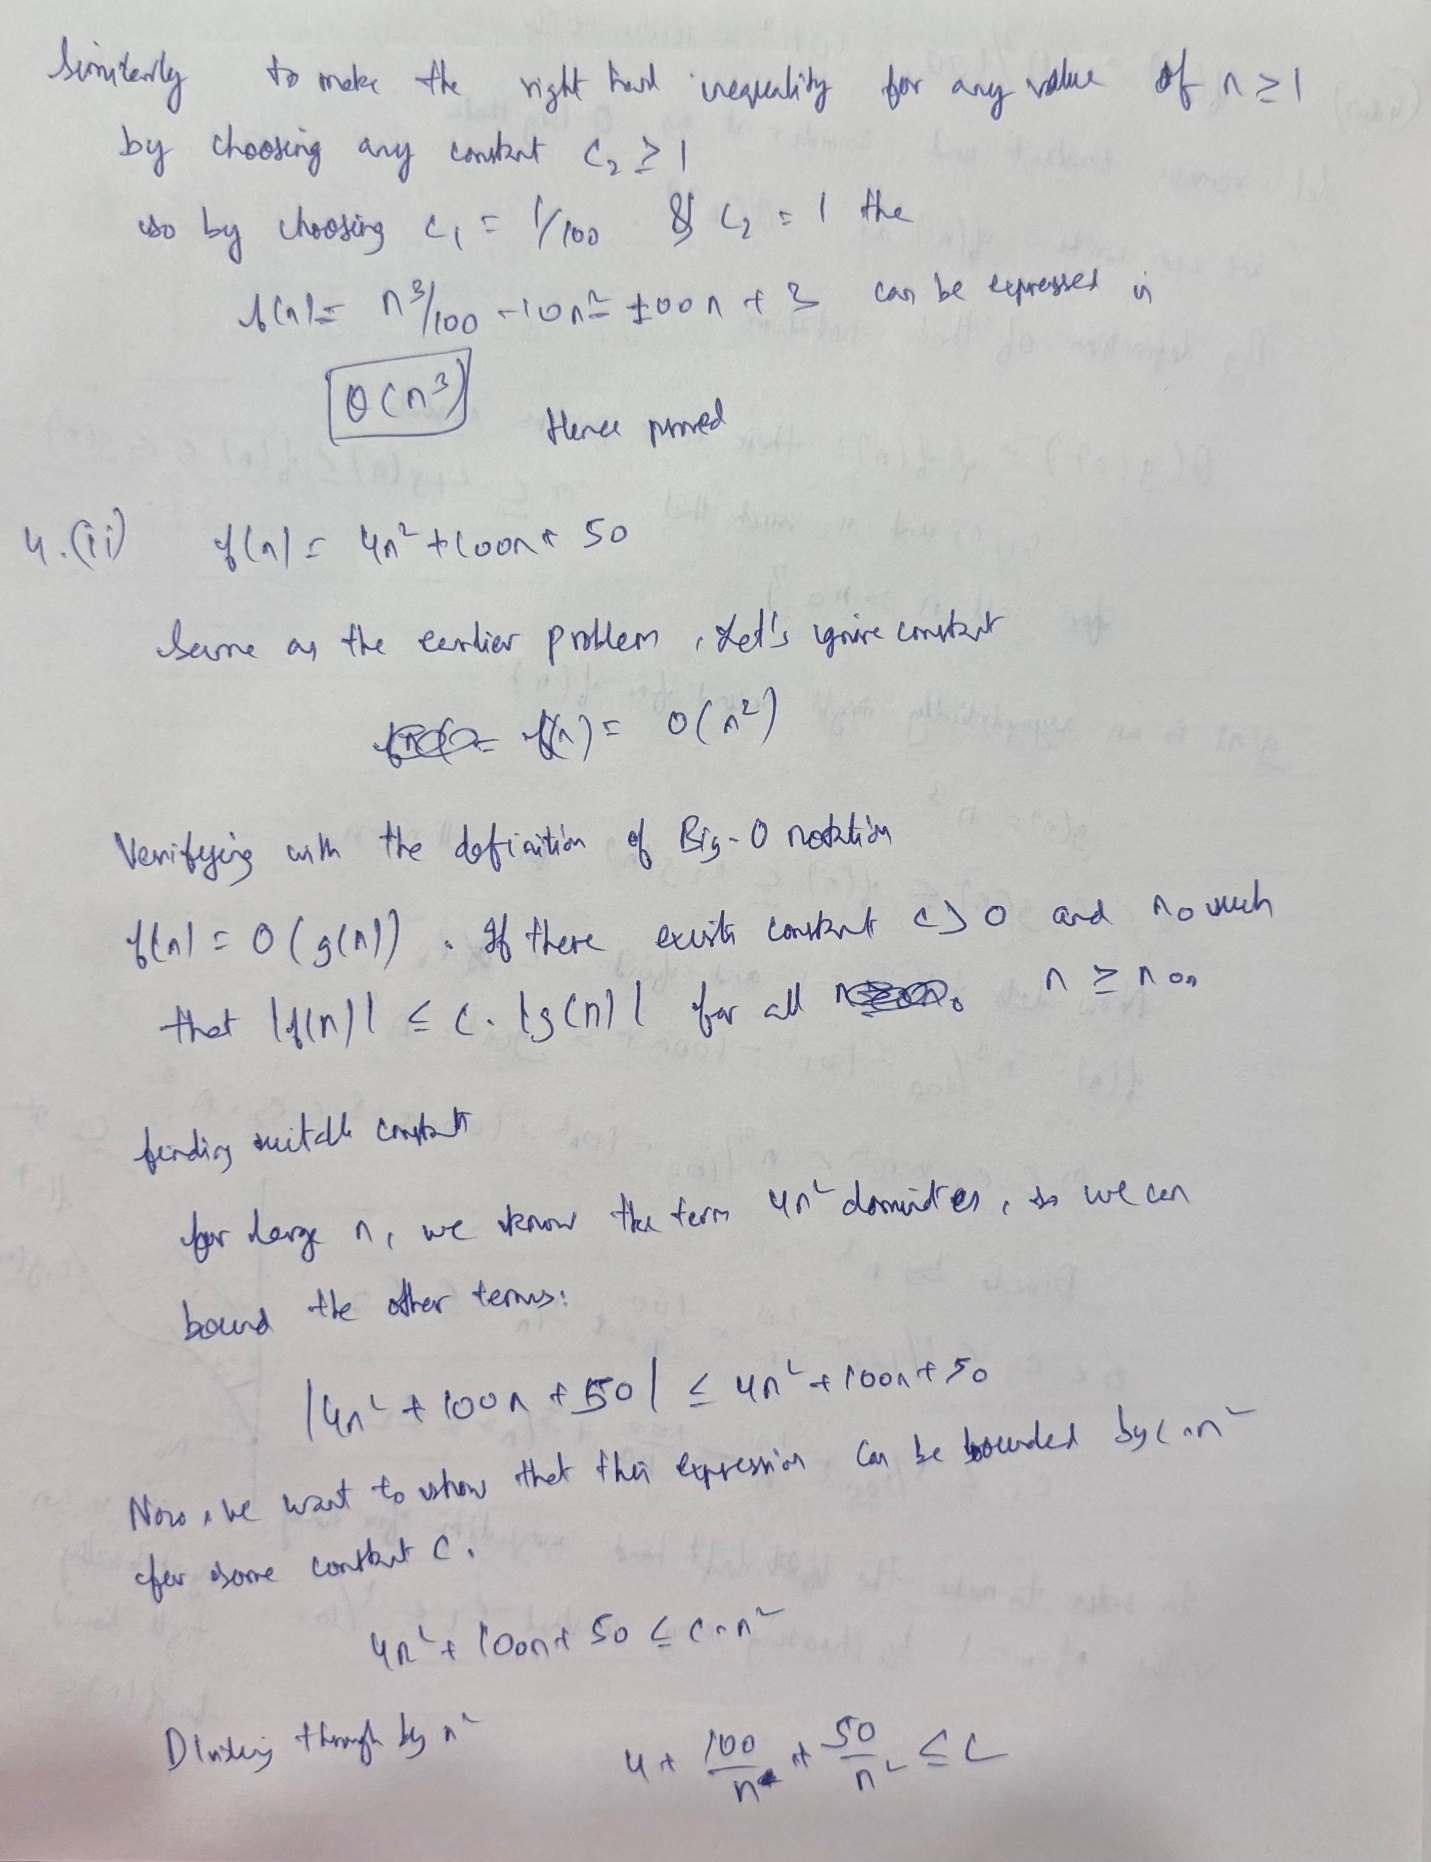 Similarly to make the right hand inequality for any value of n ≥ 1
by choosing any constant C₂ ≥ 1
so by choosing C₁ = 1/100 & C₂ = 1 the
f(n) = n³/100 - 10n² 100n + 3 can be expressed in
θ(n³)
Hence proved
4.(ii) f(n) = 4n² + 100n + 50
Same as the earlier problem, Let's ignore constant
f(n) = O(n²)
Verifying with the definition of Big-O notation
f(n) = O(g(n)). If there exists constant c > 0 and n₀ such
that |f(n)| ≤ c. |g(n)| for all n ≥ n₀,
finding suitable constants
for large n, we know the term 4n² dominates, so we can
bound the other terms:
|4n² + 100n + 50| ≤ 4n² + 100n + 50
Now, we want to show that this expression can be bounded by c.n²
for some constant C.
4n² + 100n + 50 ≤ c.n²
Dividing through by n² 4 + 100/n + 50/n² ≤ C